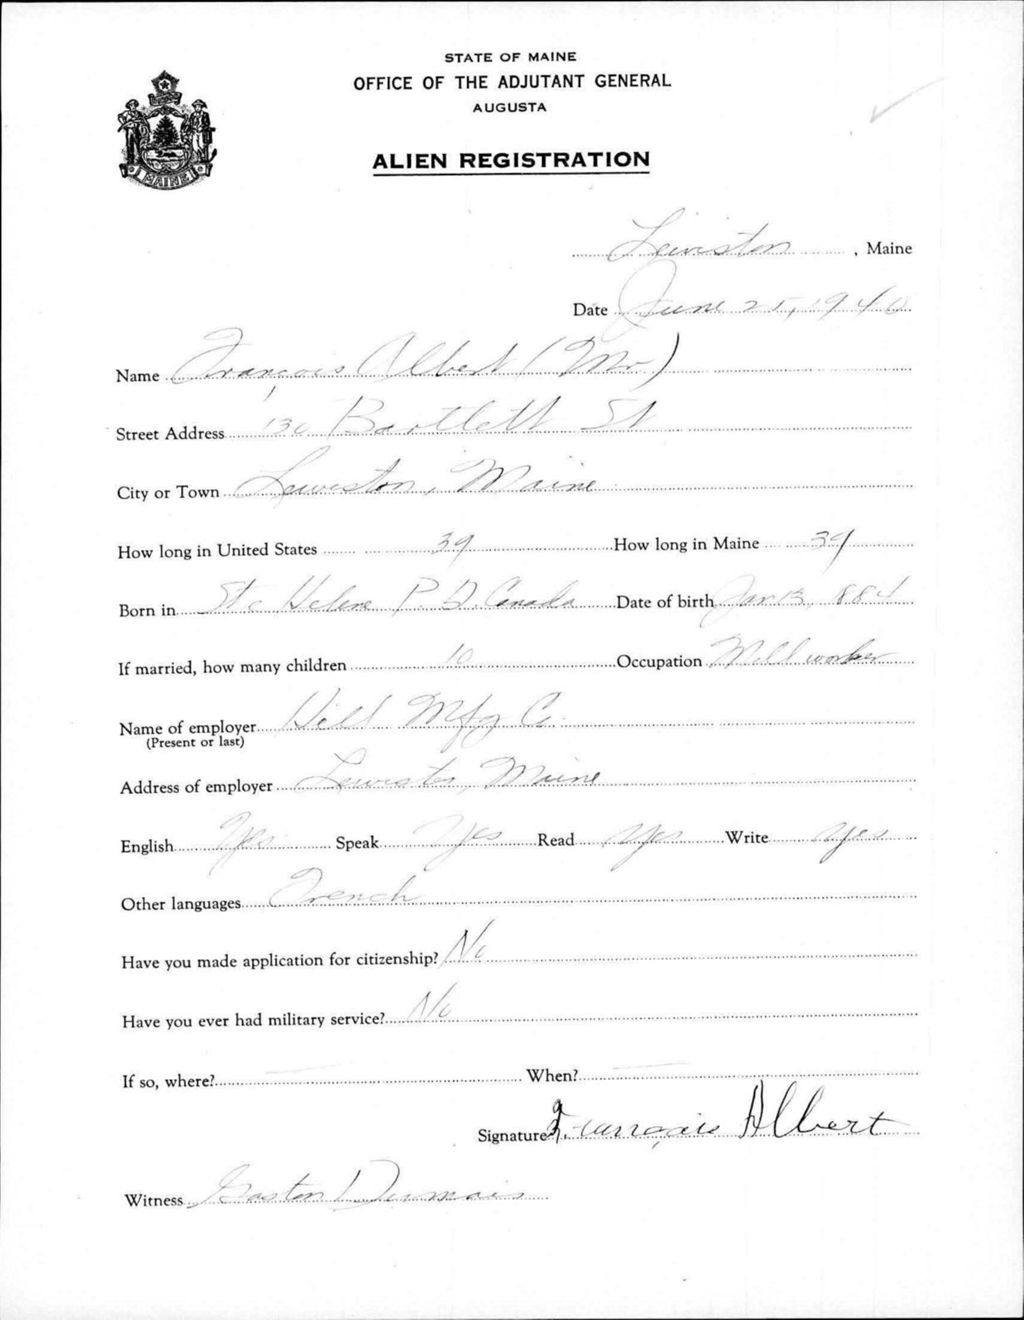 STATE OF MAINE
OFFICE OF THE ADJUTANT GENERAL
AUGUSTA
MAINE
ALIEN REGISTRATION
Lewiston, Maine
Date June 25, 1940
Name François Albert (Mr)
Street Address 130 Bartlett St
City or Town Lewiston, Maine
How long in United States 39 How long in Maine 39
Born in Ste Helene P.Q. Canada Date of birth Jan 13, 1884
If married, how many children 10 Occupation Mill worker
Name of employer Hill Mfg Co.
(Present or last)
Address of employer Lewiston, Maine
English Yes Speak Yes Read Yes Write Yes
Other languages French
Have you made application for citizenship? No
Have you ever had military service? No
If so, where? — When? —
Signature François Albert
Witness Gaston Dumais